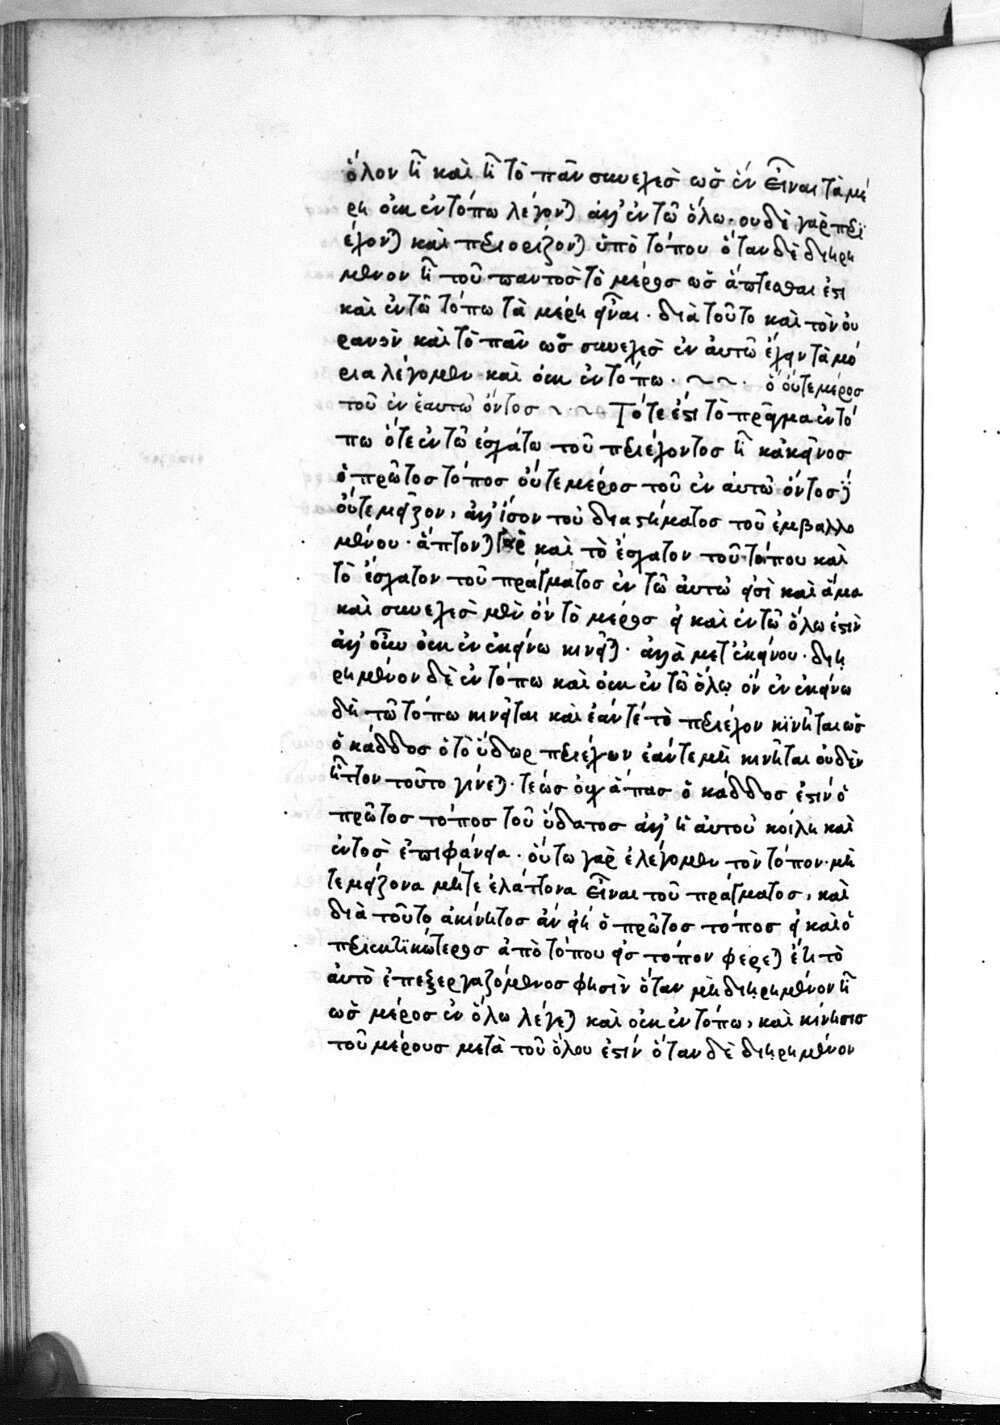 ὅλον ἦ καὶ ἦ τὸ πᾶν συνεχὲς ὡς ἓν εἶναι τὰ μέ
ρη οὐκ ἐν τόπω λέγονται ἀλλ' ἐν τῶ ὅλω· οὐδὲ γὰρ περι
έχονται καὶ περιορίζονται ὑπὸ τόπου ὅταν δὲ διῃρη
μένον ἦ τοῦ παντὸς τὸ μέρος ὡς ἅπτεσθαι ἔστι
καὶ ἐν τῶ τόπω τὰ μέρη εἶναι· διὰ τοῦτο καὶ τὸν οὐ
ρανὸν καὶ τὸ πᾶν ὡς συνεχὲς ἐν αὐτῶ ἔχειν τὰ μό
ρια λέγομεν καὶ οὐκ ἐν τόπω· ὁ οὔτε μέρος
τοῦ ἐν ἑαυτῶ ὄντος Τότε ἐστὶ τὸ πρᾶγμα ἐν τό
πω ὅτε ἐν τῶ ἐσχάτω τοῦ περιέχοντος ἦ κἀκεῖνος
ὁ πρῶτος τόπος οὔτε μέρος τοῦ ἐν αὐτῶ ὄντος
οὔτε μεῖζον, ἀλλ' ἴσον τοῦ διαστήματος τοῦ ἐμβαλλο
μένου· ἅπτονται γὰρ καὶ τὸ ἔσχατον τοῦ τόπου καὶ
τὸ ἔσχατον τοῦ πράγματος ἐν τῶ αὐτῶ εἰσὶ καὶ ἅμα
καὶ συνεχὲς μὲν ὂν τὸ μέρος εἰ καὶ ἐν τῶ ὅλω ἐστὶν
ἀλλ' οὕτω οὐκ ἐν ἐκείνω κινεῖται· ἀλλὰ μετ' ἐκείνου· διῃ
ρημένον δὲ ἐν τόπω καὶ οὐκ ἐν τῶ ὅλω ὂν ἐν ἐκείνω
δὴ τῶ τόπω κινεῖται καὶ ἐάν τε τὸ περιέχον κινῆται ὡς
ὁ κάδδος ὁ τὸ ὕδωρ περιέχων ἐάν τε μὴ κινῆται οὐδὲν
ἧττον τοῦτο γίνεται· τέως οὐχ ἅπας ὁ κάδδος ἐστὶν ὁ
πρῶτος τόπος τοῦ ὕδατος ἀλλ' ἡ αὐτοῦ κοίλη καὶ
ἐντὸς ἐπιφάνεια· οὕτω γὰρ ἐλέγομεν τὸν τόπον· μή
τε μείζονα μήτε ἐλάττονα εἶναι τοῦ πράγματος, καὶ
διὰ τοῦτο ἀκίνητος ἂν εἴη ὁ πρῶτος τόπος εἰ καὶ ὁ
περιεκτικώτερος ἀπὸ τόπου εἰς τόπον φέρεται ἔτι τὸ
αὐτὸ ἐπεξεργαζόμενος φησὶν ὅταν μὴ διῃρημένον ἦ
ὡς μέρος ἐν ὅλω λέγεται καὶ οὐκ ἐν τόπω, καὶ κίνησις
τοῦ μέρους μετὰ τοῦ ὅλου ἐστίν ὅταν δὲ διῃρημένον